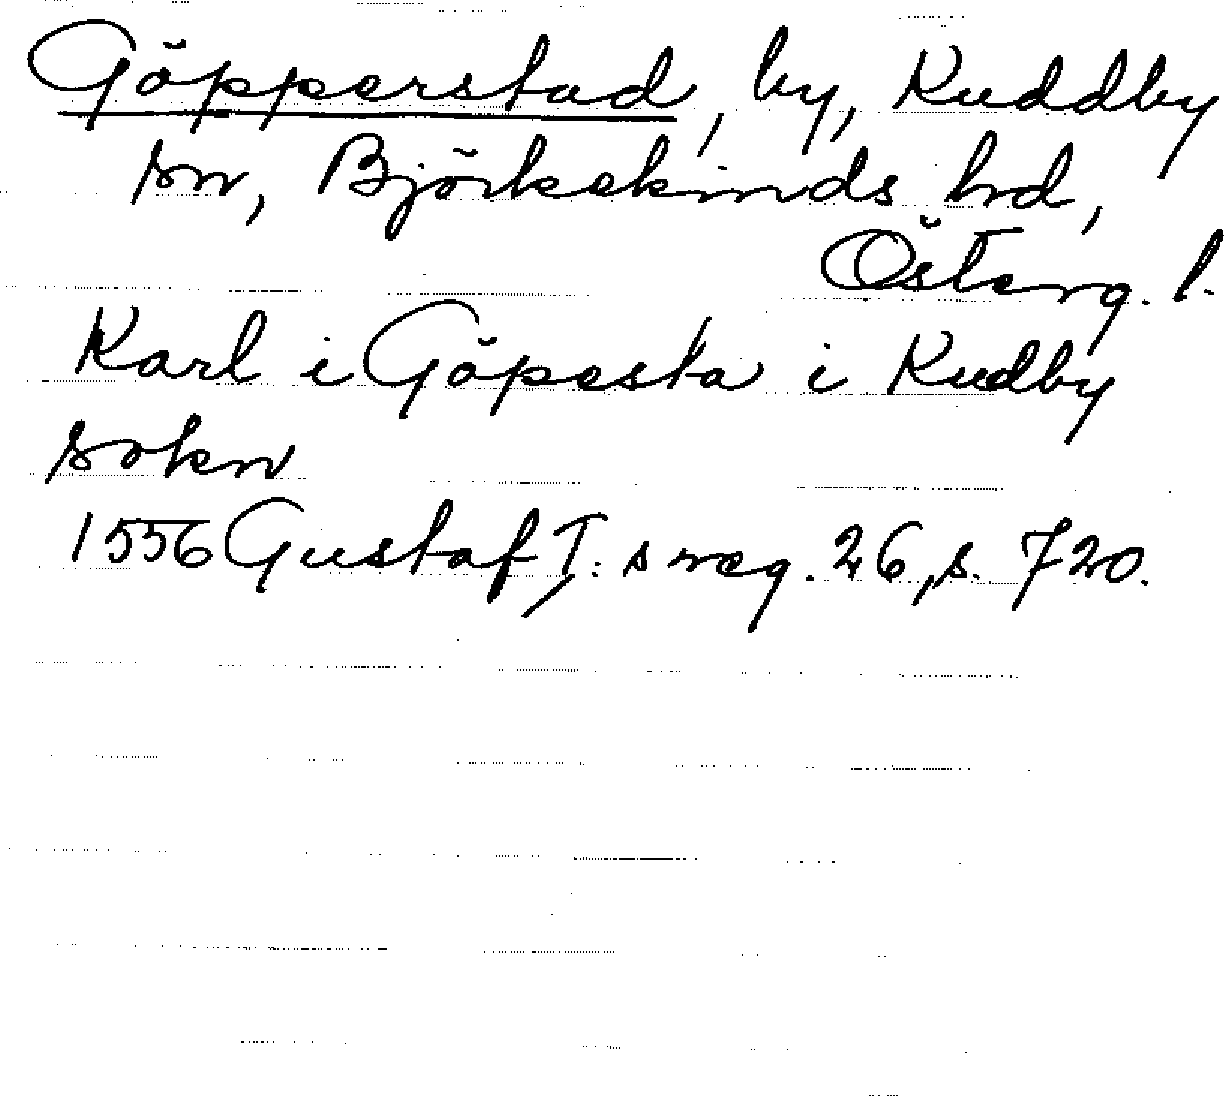 Göpperstad, by, Kuddby
sn, Björkekinds hd,
Österg. l.
Karl i Göpesta i Kudby
sokn
1556 Gustaf I: s reg. 26, s. 720.